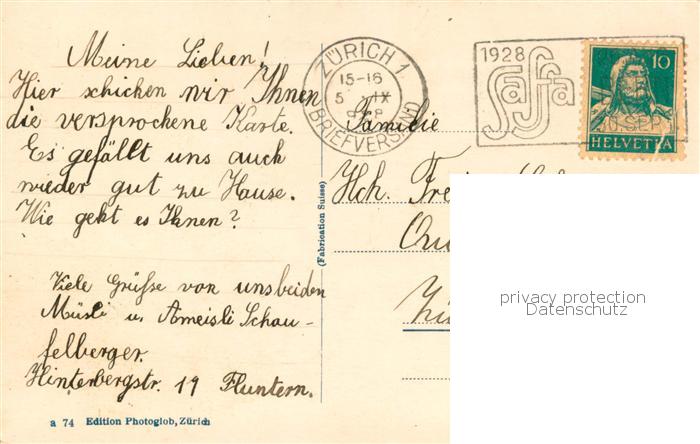 Meine Lieben!
Hier schicken wir Ihnen
die versprochene Karte.
Es gefällt uns auch
wieder gut zu Hause.
Wie geht es Ihnen?
Viele Grüsse von uns beiden
Müsli u. Ameisli Schau-
felberger.
Hinterbergstr. 19 Fluntern.
a 74 Edition Photoglob, Zürich
(Fabrication Suisse)
ZÜRICH 1
15-16
5 IX
BRIEFVERSAND
1928
Saffa
SEP
10
HELVETIA
Familie
Hch.
privacy protection
Datenschutz